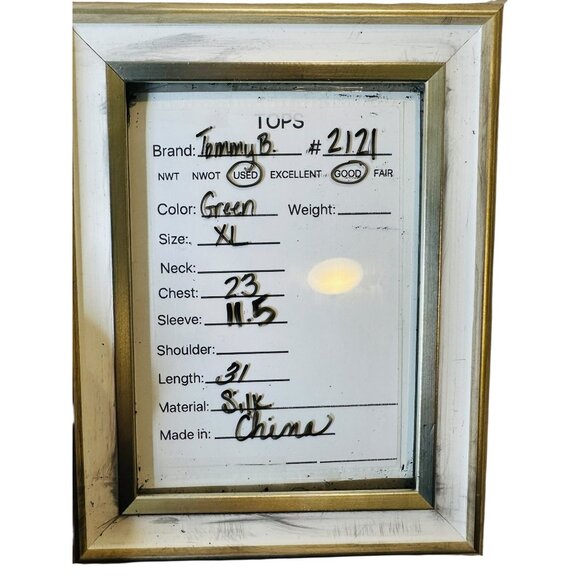 TOPS
Brand: Tommy B. # 2121
NWT NWOT USED EXCELLENT GOOD FAIR
Color: Green Weight:
Size: XL
Neck:
Chest: 23
Sleeve: 11.5
Shoulder:
Length: 31
Material: Silk
Made in: China